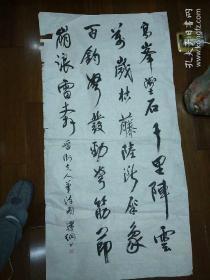 高峯墜石千里陣雲
萬歲枯藤陸斷犀象
百鈞弩發勁弩筋節
崩浪雷奔 晉衛夫人筆陣圖
孔夫子旧书网